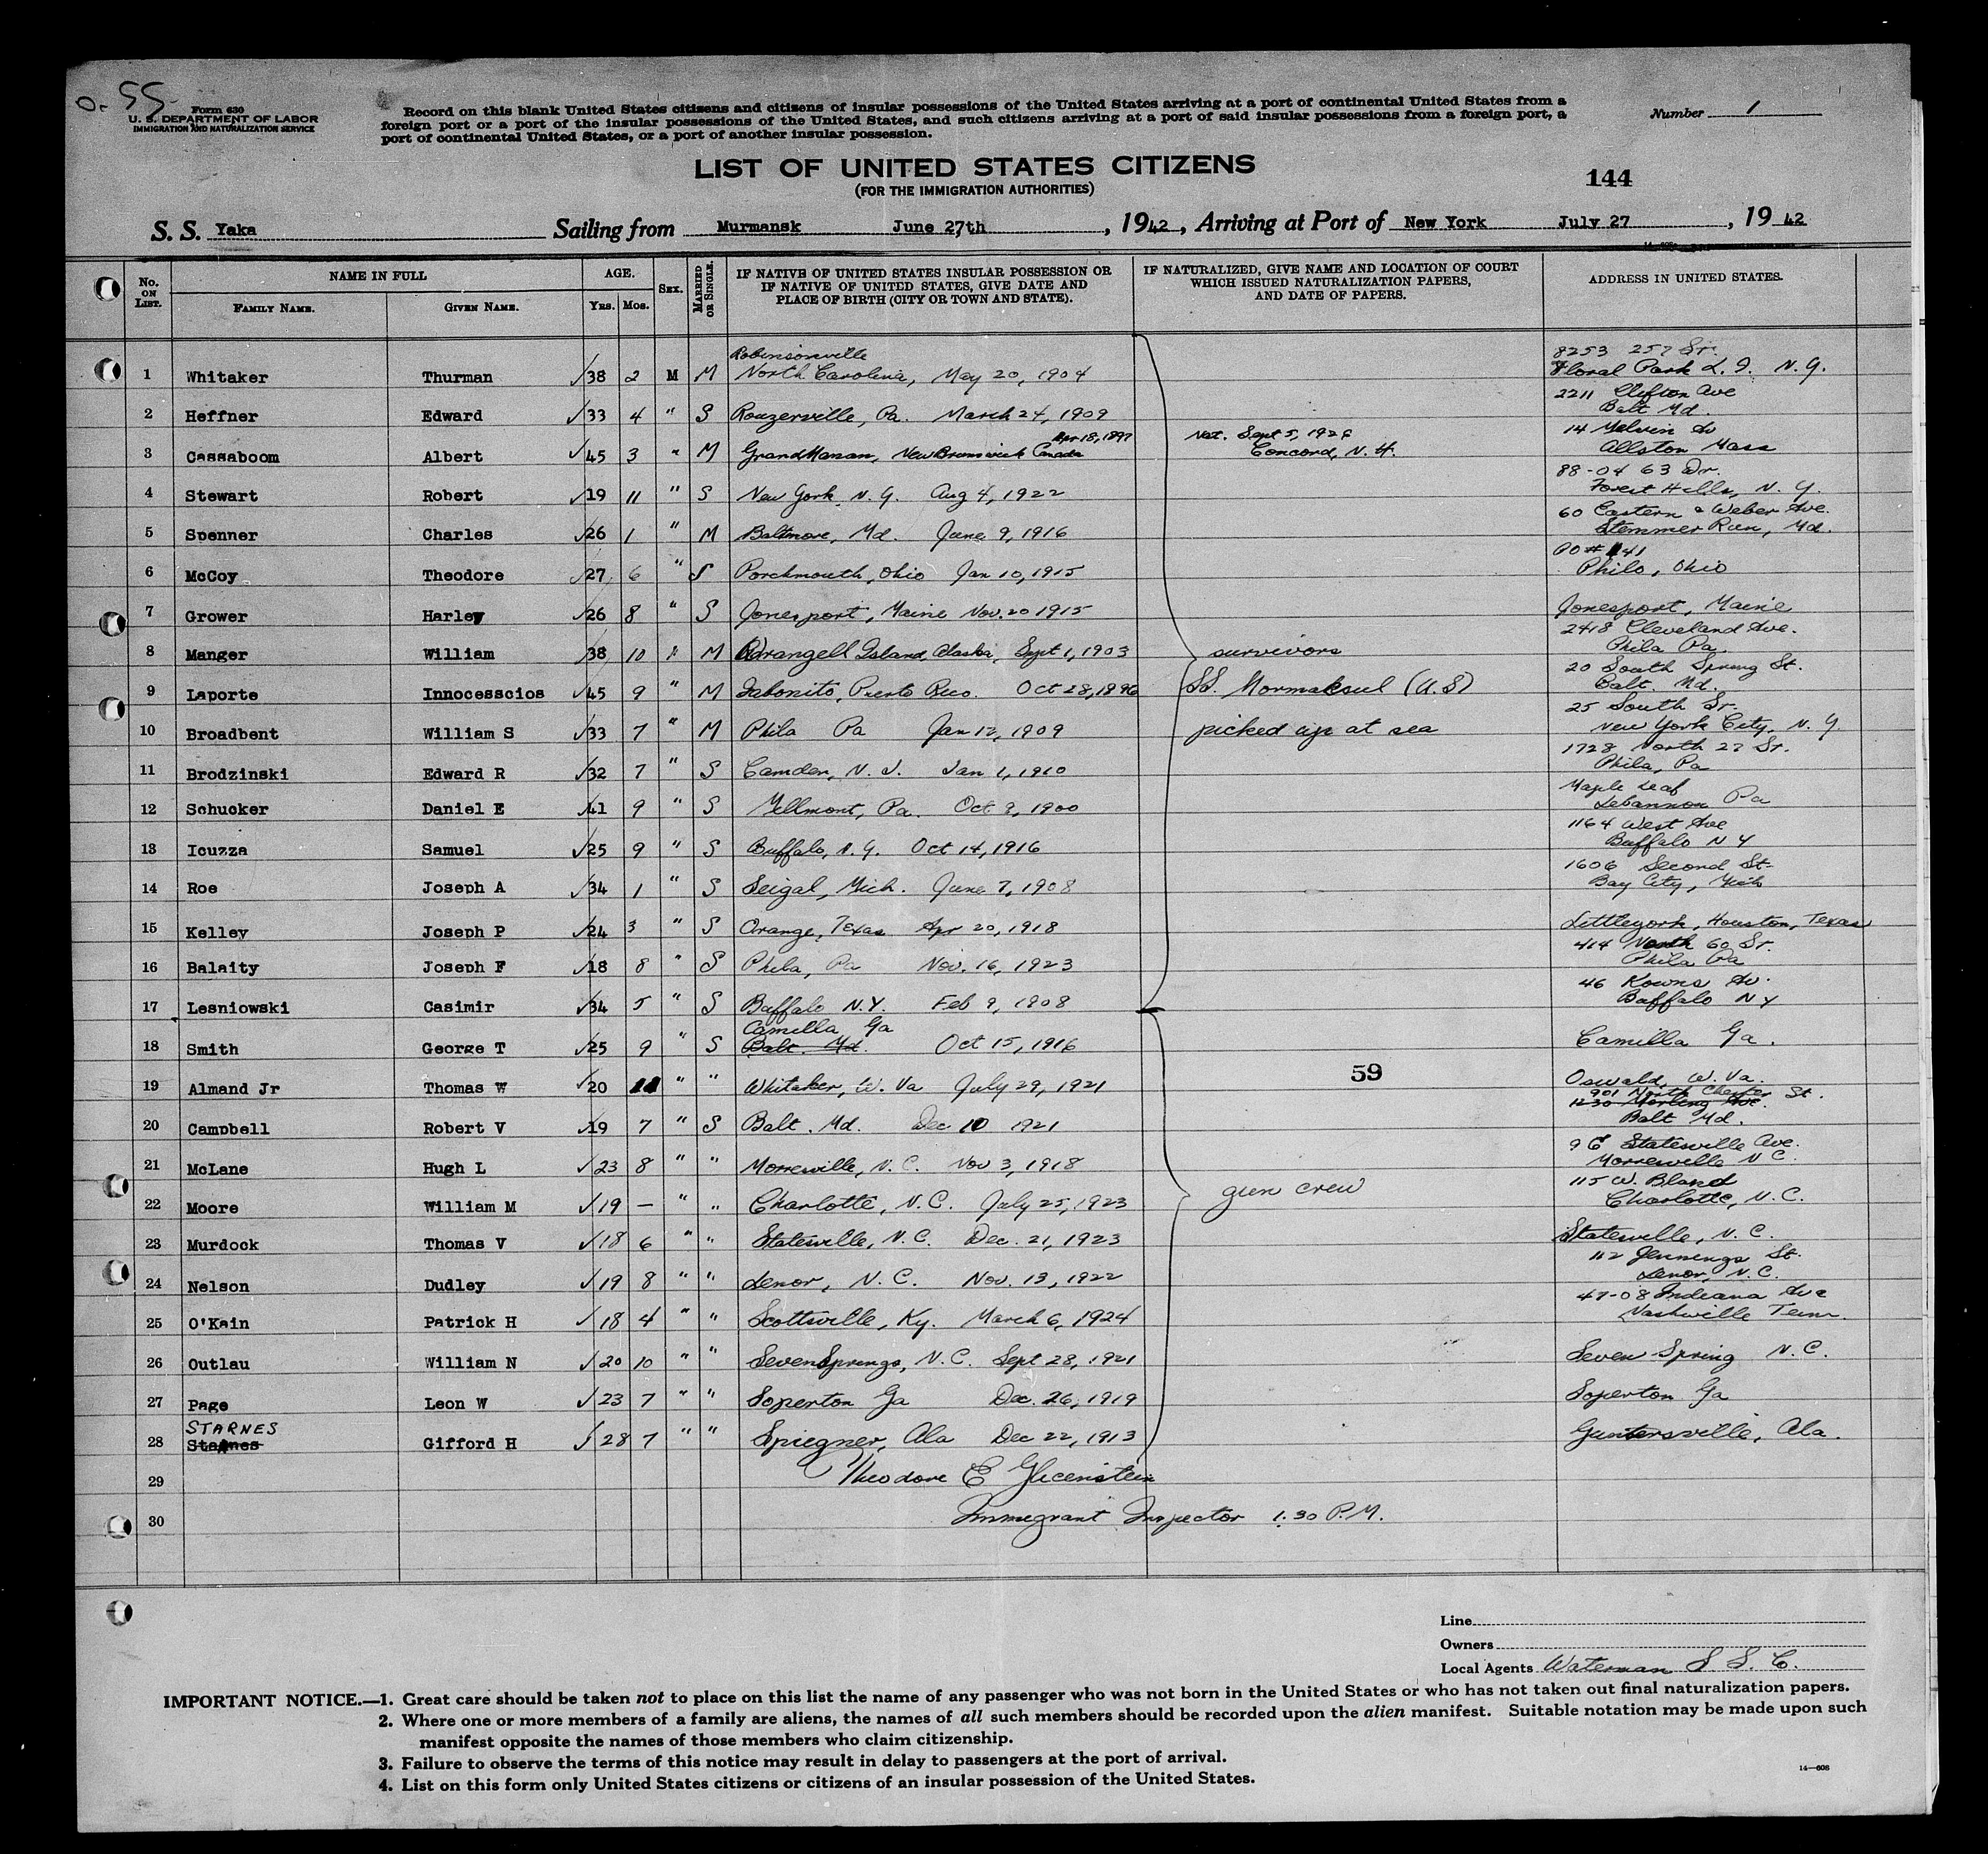 o- 55
Form 630
U. S. DEPARTMENT OF LABOR
IMMIGRATION AND NATURALIZATION SERVICE
Record on this blank United States citizens and citizens of insular possessions of the United States arriving at a port of continental United States from a
foreign port or a port of the insular possessions of the United States, and such citizens arriving at a port of said insular possessions from a foreign port, a
port of continental United States, or a port of another insular possession.
Number 1
LIST OF UNITED STATES CITIZENS
(FOR THE IMMIGRATION AUTHORITIES)
144
S. S. Yaka Sailing from Murmansk June 27th, 1942, Arriving at Port of New York July 27, 1942
No. ON LIST. NAME IN FULL FAMILY NAME. GIVEN NAME. AGE. YRS. MOS. SEX. MARRIED OR SINGLE. IF NATIVE OF UNITED STATES INSULAR POSSESSION OR IF NATIVE OF UNITED STATES, GIVE DATE AND PLACE OF BIRTH (CITY OR TOWN AND STATE). IF NATURALIZED, GIVE NAME AND LOCATION OF COURT WHICH ISSUED NATURALIZATION PAPERS, AND DATE OF PAPERS. ADDRESS IN UNITED STATES.
Robinsonville 8253 257 St.
1 Whitaker Thurman 38 2 M M North Carolina, May 20, 1904 Floral Park L. I. N. Y.
2211 Clifton Ave
2 Heffner Edward 33 4 " S Rouzerville, Pa. March 24, 1909 Balt Md.
Apr 18, 1897 Nat. Sept 5, 14 Melvin Av
3 Cassaboom Albert 45 3 " M Grand Manan, New Brunswick Canada Concord, N. H. Allston Mass
88-04 63 Dr.
4 Stewart Robert 19 11 " S New York N. Y. Aug 4, 1922 Forest Hills, N. Y.
60 Eastern & Weber Ave.
5 Spenner Charles 26 1 " M Baltmore, Md. June 9, 1916 Stemmer Run, Md.
PO # 141
6 McCoy Theodore 27 6 " S Porchmouth, Ohio Jan 10, 1915 Philo, Ohio
7 Grower Harley 26 8 " S Jonesport, Maine Nov. 20 1915 Jonesport, Maine
2418 Cleveland Ave.
8 Manger William 38 10 " M Wrangell Island, Alaska, Sept 1, 1903 survivors Phila Pa.
20 South Spring St.
9 Laporte Innocesscios 45 9 " M Jabonito, Puerto Rico. Oct 28, 1896 SS. Mormaksul (U.S) Balt. Md.
25 South St.
10 Broadbent William S 33 7 " M Phila Pa Jan 12, 1909 picked up at sea New York City, N. Y.
1728 North 22 St.
11 Brodzinski Edward R 32 7 " S Camden, N. J. Jan 1, 1910 Phila, Pa
Maple Leaf
12 Schucker Daniel E 41 9 " S Oct 1900 Lebannon Pa
1164 West Ave
13 Icuzza Samuel 25 9 " S Buffalo, N. Y. Oct 14, 1916 Buffalo N Y
1606 Second St.
14 Roe Joseph A 34 1 " S Seigal, Mich. June 7, 1908 Bay City, Mich
15 Kelley Joseph P 24 3 " S Orange, Texas Apr 20, 1918 Littleyork, Houston, Texas
414 North 60 St.
16 Balaity Joseph F 18 8 " S Phila, Pa Nov. 16, 1923 Phila Pa
46 Kowns Av.
17 Lesniowski Casimir 34 5 " S Buffalo N.Y. Feb 9, 1908 Buffalo N Y
Camella Ga
18 Smith George T 25 9 " S Balt. Md. Oct 15, 1916 Camilla Ga.
19 Almand Jr Thomas W 20 11 " " Whitaker, W. Va July 29, 1921 59 Oswald, W. Va.
901 North Chester St.
1230 Ave.
20 Campbell Robert V 19 7 " S Balt. Md. Dec 10 1921 Balt Md.
9 E Statesville Ave.
21 McLane Hugh L 23 8 " " Morresville, N. C. Nov 3, 1918 Morresville N C.
115 W. Bland
22 Moore William M 19 — " " Charlotte, N. C. July 25, 1923 gun crew Charlotte, N. C.
23 Murdock Thomas V 18 6 " " Statesville, N. C. Dec. 21, 1923 Statesville, N. C.
112 Jennings St.
24 Nelson Dudley 19 8 " " Lenor, N. C. Nov. 13, 1922 Lenor, N. C.
47-08 Indiana Ave
25 O'Kain Patrick H 18 4 " " Scottsville, Ky. March 6, 1924 Nashville Tenn.
26 Outlau William N 20 10 " " Seven Springs, N. C. Sept 28, 1921 Seven Spring N. C.
27 Page Leon W 23 7 " " Soperton Ga Dec. 26, 1919 Soperton Ga
STARNES
28 Starnes Gifford H 28 7 " " Spiegner, Ala Dec 22, 1913 Guntersville, Ala.
29 Theodore E Glicenstein
30 Immigrant Inspector 1.30 P.M.
Line
Owners
Local Agents Waterman S S. C.
IMPORTANT NOTICE.—1. Great care should be taken not to place on this list the name of any passenger who was not born in the United States or who has not taken out final naturalization papers.
2. Where one or more members of a family are aliens, the names of all such members should be recorded upon the alien manifest. Suitable notation may be made upon such
manifest opposite the names of those members who claim citizenship.
3. Failure to observe the terms of this notice may result in delay to passengers at the port of arrival.
4. List on this form only United States citizens or citizens of an insular possession of the United States.
14—608